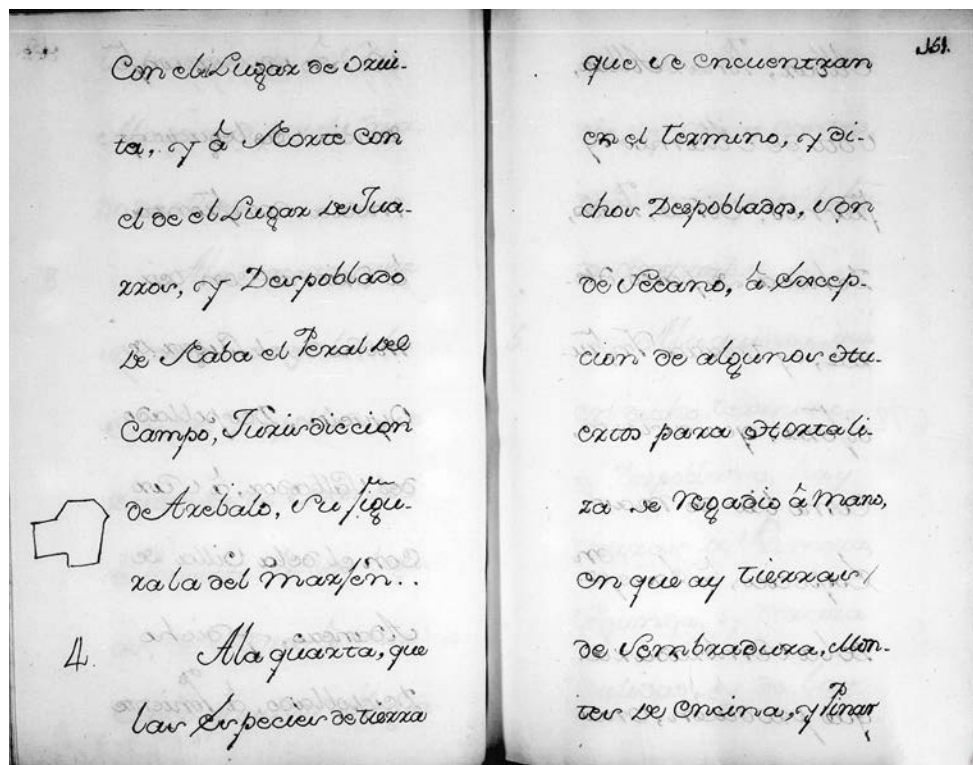 Con el Lugar de Orui-
ta, y â Norte Con
el de el Lugar de Jua-
rros, y Despoblado
de Naba el Peral del
Campo, Jurisdiccion
de Arebalo, su figu-
rala del Marjen..
4. Ala quarta, que
las Especies de tierra
161.
que se encuentran
en el termino, y di-
chos Despoblados, son
de Secano, â excep-
cion de algunos Hu-
ertos para Hortali-
za de Regadio â Mano,
en que ay tierras
de Sembradura, Mon-
tes de Encina, y Pinar